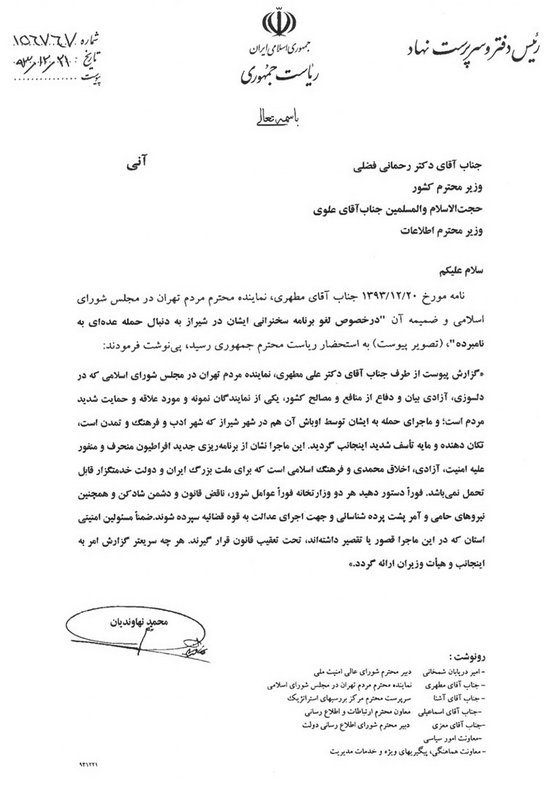 رئیس دفتر و سرپرست نهاد
جمهوری اسلامی ایران
ریاست جمهوری
شماره ۱۵۶۷۶۷
تاریخ ۹۳،۱۲،۲۱
پیوست
باسمه تعالی
آنی
جناب آقای دکتر رحمانی فضلی
وزیر محترم کشور
حجت‌الاسلام والمسلمین جناب‌آقای علوی
وزیر محترم اطلاعات
سلام علیکم
نامه مورخ ۱۳۹۳/۱۲/۲۰ جناب آقای مطهری، نماینده محترم مردم تهران در مجلس شورای
اسلامی و ضمیمه آن "درخصوص لغو برنامه سخنرانی ایشان در شیراز به دنبال حمله عده‌ای به
نامبرده"، (تصویر پیوست) به استحضار ریاست محترم جمهوری رسید، پی‌نوشت فرمودند:
«گزارش پیوست از طرف جناب آقای دکتر علی مطهری، نماینده مردم تهران در مجلس شورای اسلامی که در
دلسوزی، آزادی بیان و دفاع از منافع و مصالح کشور، یکی از نمایندگان نمونه و مورد علاقه و حمایت شدید
مردم است؛ و ماجرای حمله به ایشان توسط اوباش آن هم در شهر شیراز که شهر ادب و فرهنگ و تمدن است،
تکان دهنده و مایه تأسف شدید اینجانب گردید. این ماجرا نشان از برنامه‌ریزی جدید افراطیون منحرف و منفور
علیه امنیت، آزادی، اخلاق محمدی و فرهنگ اسلامی است که برای ملت بزرگ ایران و دولت خدمتگزار قابل
تحمل نمی‌باشد. فوراً دستور دهید هر دو وزارتخانه فوراً عوامل شرور، ناقض قانون و دشمن شادکن و همچنین
نیروهای حامی و آمر پشت پرده شناسائی و جهت اجرای عدالت به قوه قضائیه سپرده شوند.ضمناً مسئولین امنیتی
استان که در این ماجرا قصور یا تقصیر داشته‌اند، تحت تعقیب قانون قرار گیرند. هر چه سریعتر گزارش امر به
اینجانب و هیأت وزیران ارائه گردد.»
محمد نهاوندیان
رونوشت :
- امیر دریابان شمخانی دبیر محترم شورای عالی امنیت ملی
- جناب آقای مطهری نماینده محترم مردم تهران در مجلس شورای اسلامی
- جناب آقای آشنا سرپرست محترم مرکز بررسیهای استراتژیک
-جناب آقای اسماعیلی معاون محترم ارتباطات و اطلاع رسانی
-جناب آقای معزی دبیر محترم شورای اطلاع رسانی دولت
-معاونت امور سیاسی
-معاونت هماهنگی، پیگیریهای ویژه و خدمات مدیریت
۹۳۱۲۲۱